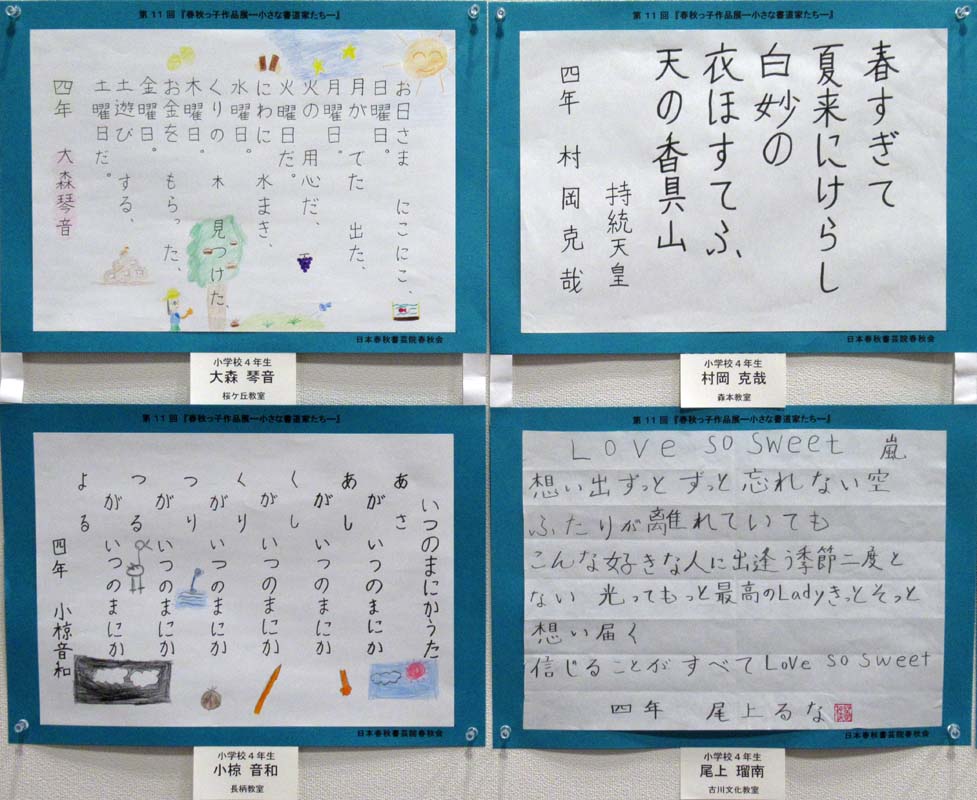 第11回『春秋っ子作品展ー小さな書道家たちー』
お日さま にこにこ、
日曜日。
月が でた 出た、
月曜日。
火の 用心だ、
火曜日だ。
にわに 水まき、
水曜日。
くりの 木 見つけた、
木曜日。
お金を もらった、
金曜日。
土遊び する、
土曜日だ。
四年 大森琴音
日本春秋書芸院春秋会
小学校4年生
大森 琴音
桜ケ丘教室
第11回『春秋っ子作品展ー小さな書道家たちー』
春すぎて
夏来にけらし
白妙の
衣ほすてふ
天の香具山
持統天皇
四年 村岡克哉
日本春秋書芸院春秋会
小学校4年生
村岡 克哉
森本教室
第11回『春秋っ子作品展ー小さな書道家たちー』
いつのまにかうた
あさ
がいつのまにか
あし
がいつのまにか
くし
がいつのまにか
くり
がいつのまにか
つり
がいつのまにか
つる
がいつのまにか
よる
四年 小椋音和
日本春秋書芸院春秋会
小学校4年生
小椋 音和
長柄教室
第11回『春秋っ子作品展ー小さな書道家たちー』
Love so sweet 嵐
想い出ずっと ずっと 忘れない空
ふたりが離れていても
こんな好きな人に出逢う季節二度と
ない 光ってもっと最高のLadyきっとそっと
想い届く
信じることがすべてLove so sweet
四年 尾上るな
日本春秋書芸院春秋会
小学校4年生
尾上 瑠南
古川文化教室